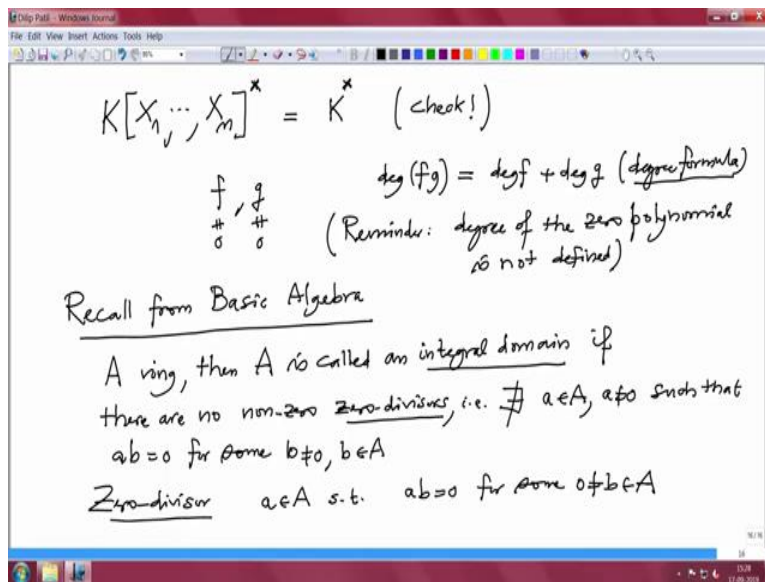 Dilip Patil - Windows Journal
File Edit View Insert Actions Tools Help
K[X₁, ..., Xₙ]ˣ = Kˣ (check!)
deg(fg) = deg f + deg g (degree formula)
f, g
≠ ≠
0 0
(Reminder: degree of the zero polynomial
is not defined)
Recall from Basic Algebra
A ring, then A is called an integral domain if
there are no non-zero zero-divisors, i.e. ∄ a∈A, a≠0 such that
ab=0 for some b≠0, b∈A
Zero-divisor a∈A s.t. ab=0 for some 0≠b∈A
15:28